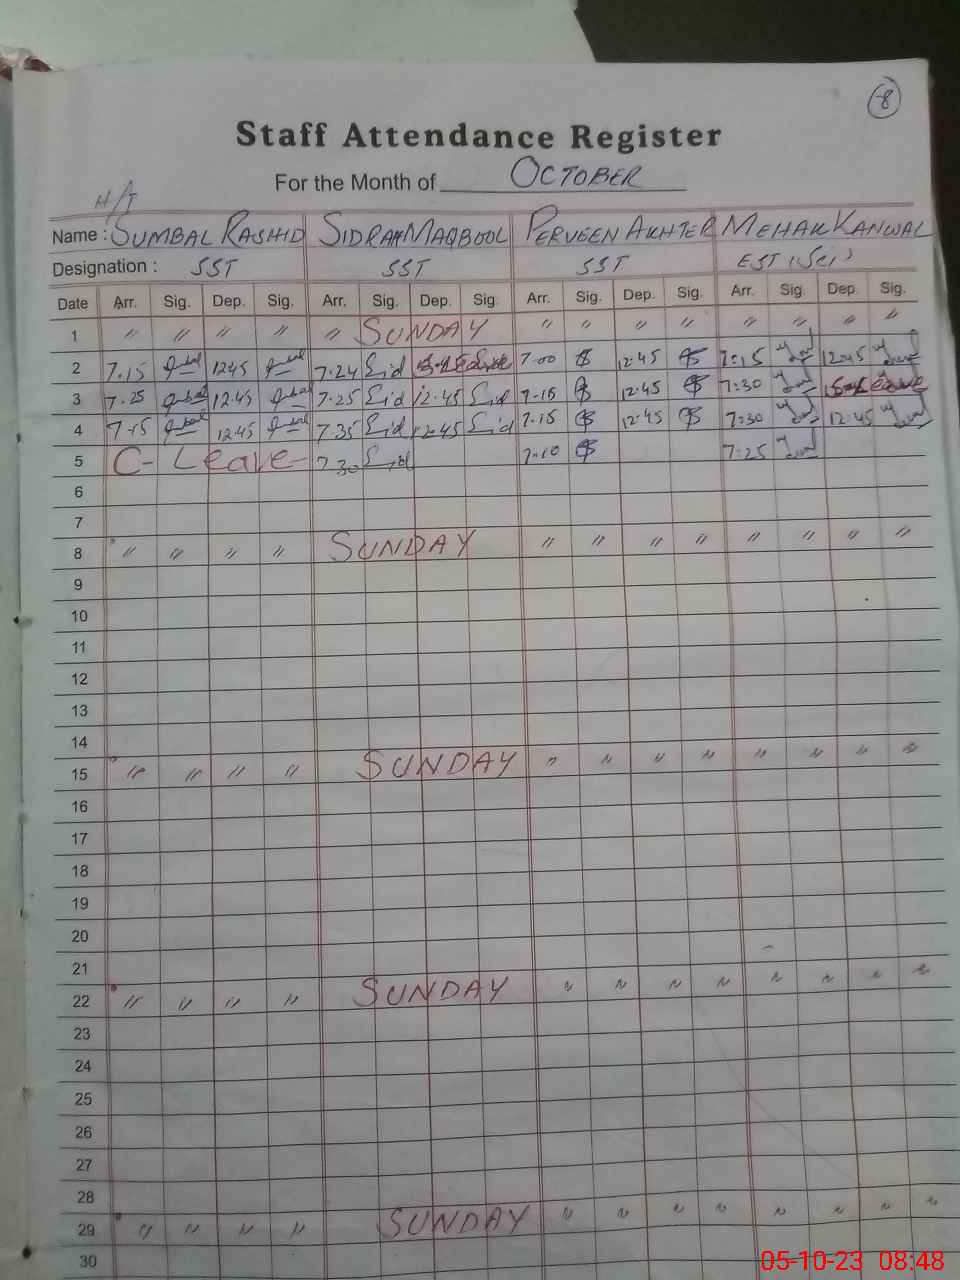 8
Staff Attendance Register
For the Month of OCTOBER
H/T
Name : SUMBAL RASHID SIDRAH MAQBOOL PERVEEN AKHTER MEHAK KANWAL
Designation : SST SST SST EST (Sci)
Date Arr. Sig. Dep. Sig. Arr. Sig. Dep. Sig. Arr. Sig. Dep. Sig. Arr. Sig. Dep. Sig.
1 " " " " " SUNDAY " " " " " " " "
2 7.15 12.45 7.24 Sid S-Leave 7.00 12.45 7:15 12.45
3 7.25 12.45 7.25 Sid 12.45 Sid 7.15 12.45 7:30 S-Leave
4 7.15 12.45 7.35 Sid 12.45 Sid 7.15 12.45 7:30 12.45
5 C- Leave- 7.30 Sid 7.10 7.25
6
7
8 " " " " SUNDAY " " " " " " " "
9
10
11
12
13
14
15 " " " " SUNDAY " " " " " " " "
16
17
18
19
20
21
22 " " " " SUNDAY " " " " " " " "
23
24
25
26
27
28
29 " " " " SUNDAY " " " " " " " "
30
05-10-23 08:48